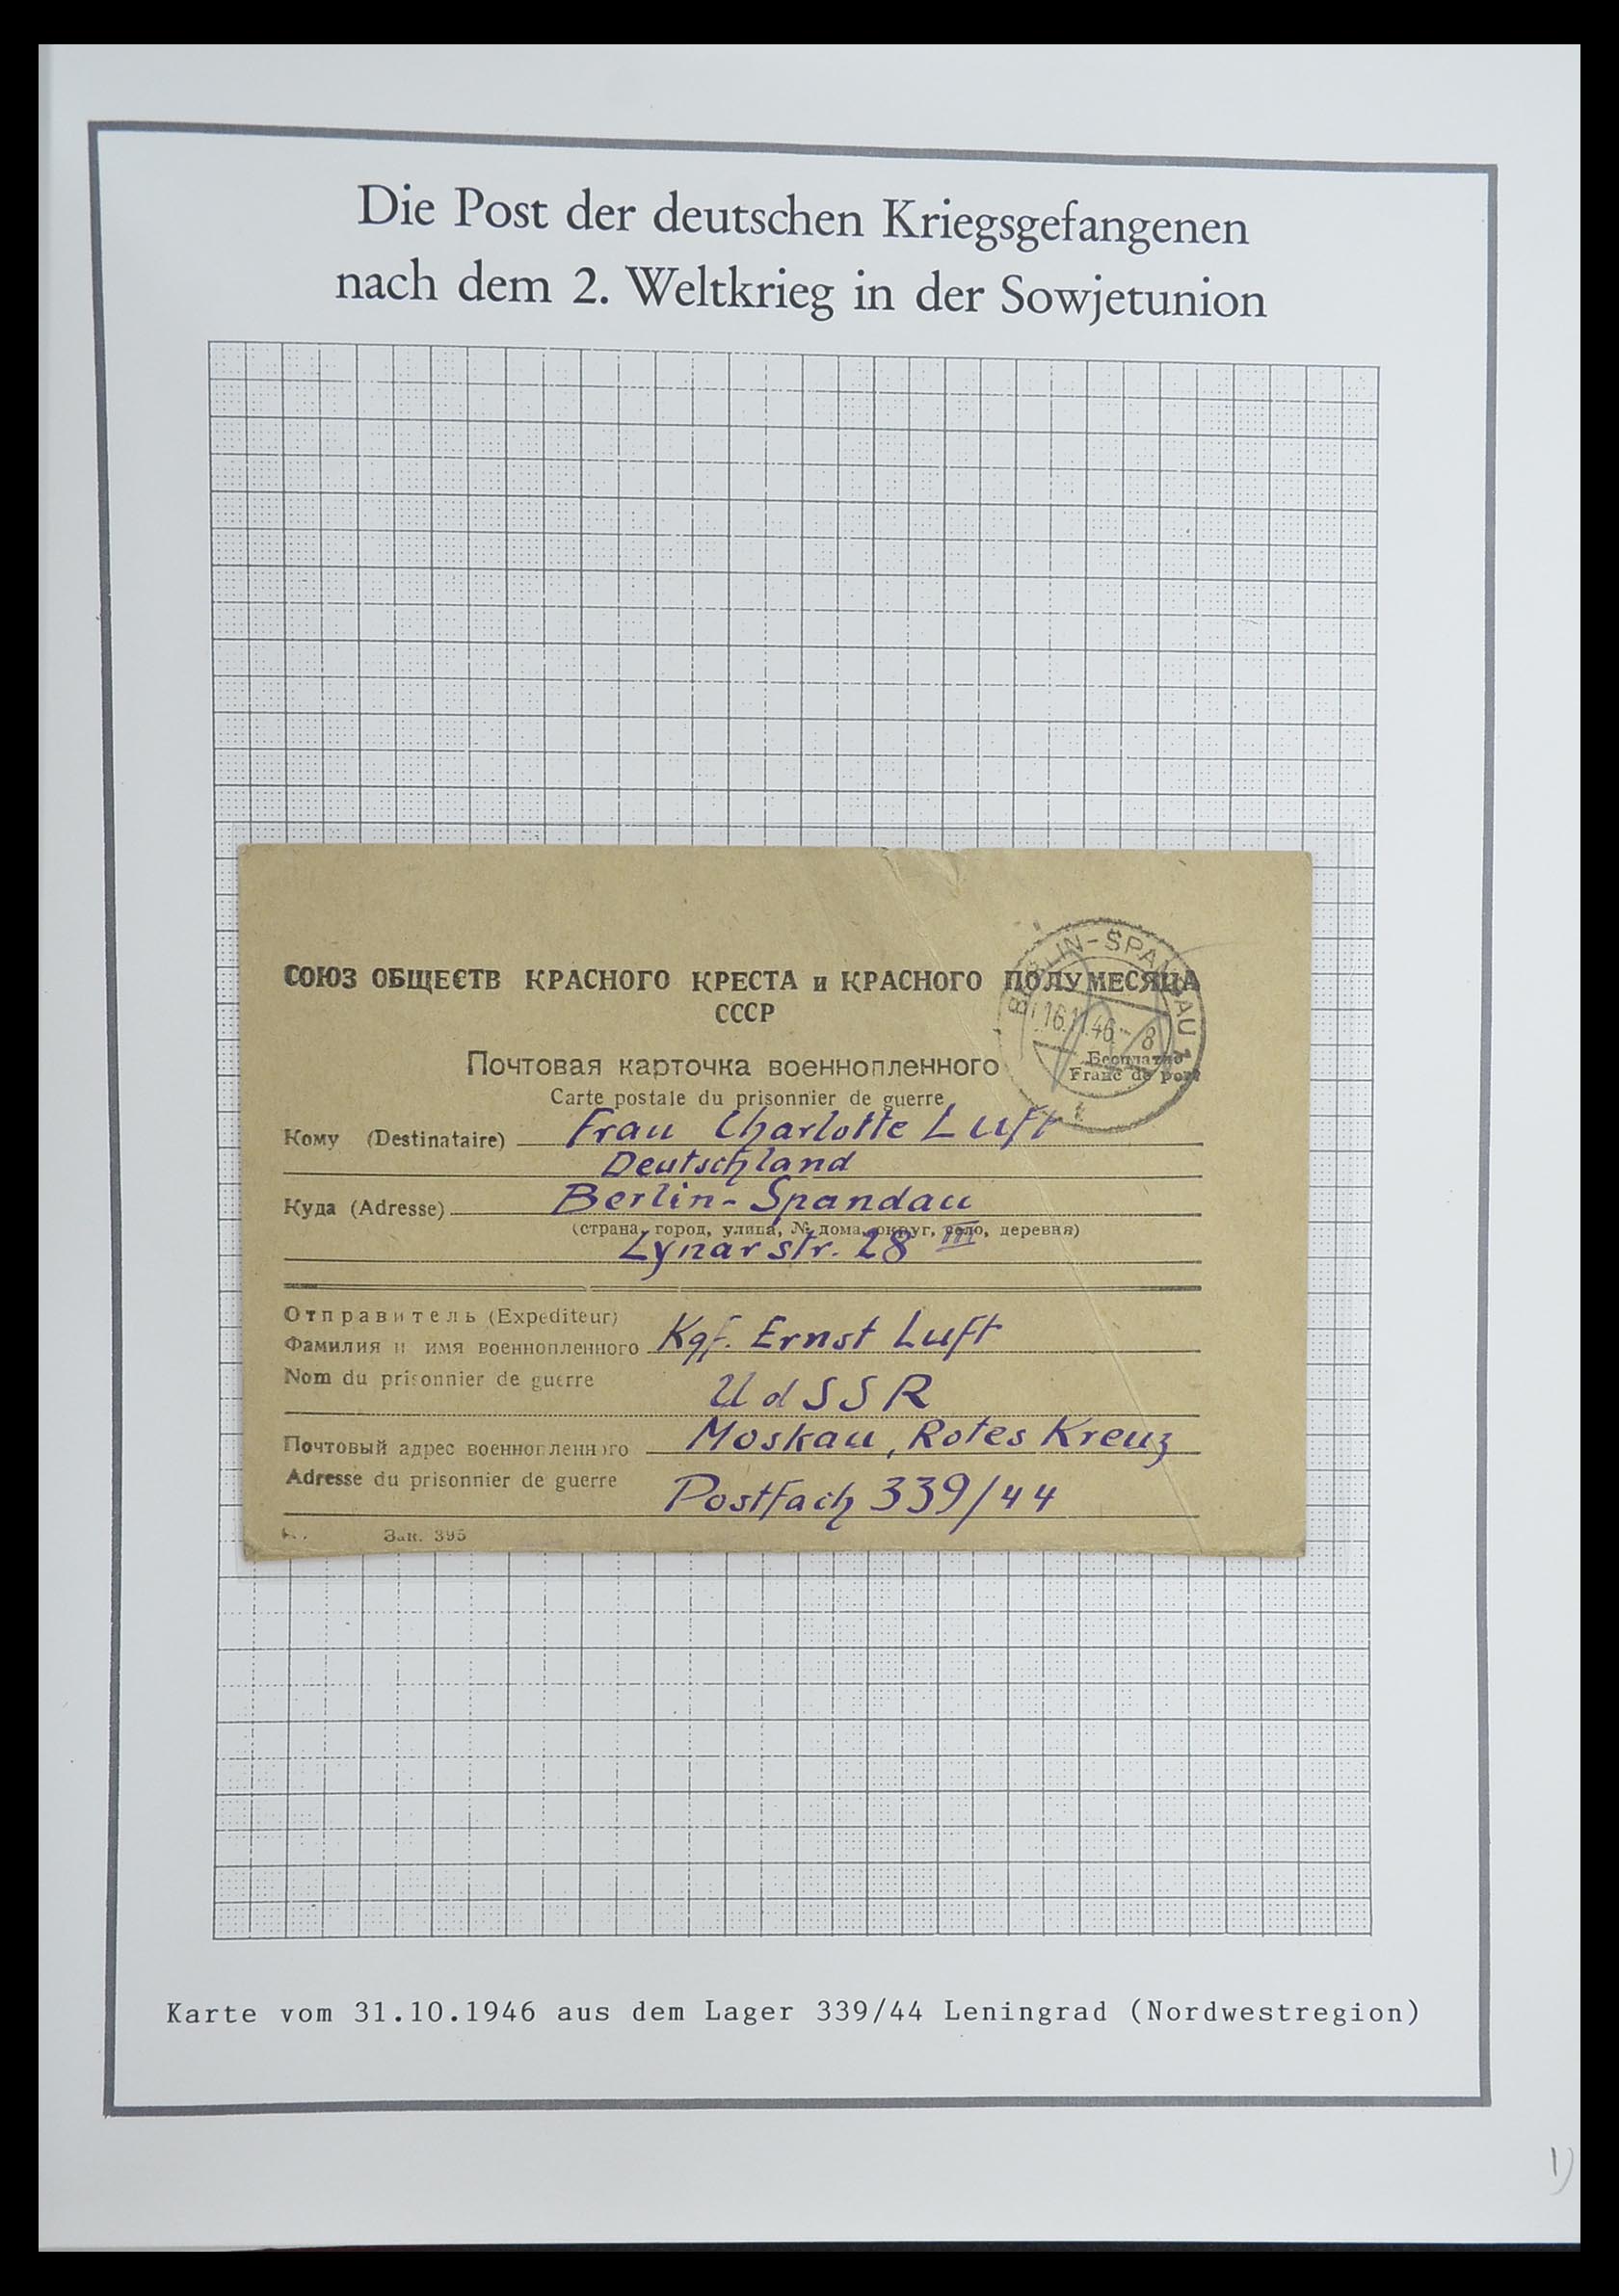 Die Post der deutschen Kriegsgefangenen
nach dem 2. Weltkrieg in der Sowjetunion
СОЮЗ ОБЩЕСТВ КРАСНОГО КРЕСТА и КРАСНОГО ПОЛУМЕСЯЦА
СССР
BERLIN-SPANDAU 1
16.11.46-8
Почтовая карточка военнопленного
Бесплатно
Franc de port
Carte postale du prisonnier de guerre
Кому (Destinataire) Frau Charlotte Luft
Deutschland
Куда (Adresse) Berlin-Spandau
(страна, город, улица, № дома, округ, село, деревня)
Lynarstr. 28 III
Отправитель (Expediteur)
Фамилия и имя военнопленного Kgf. Ernst Luft
Nom du prisonnier de guerre
UdSSR
Почтовый адрес военнопленного Moskau, Rotes Kreuz
Adresse du prisonnier de guerre Postfach 339/44
Зак. 395
Karte vom 31.10.1946 aus dem Lager 339/44 Leningrad (Nordwestregion)
1)